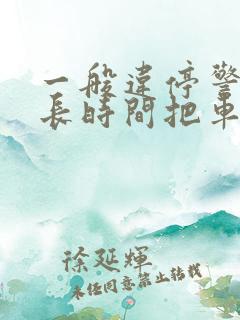 一般違停警
長時間把車
徐延輝
未經同意禁止轉載